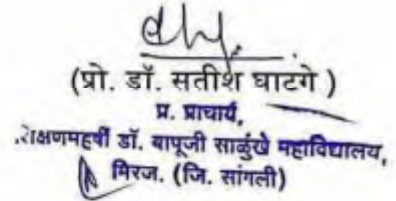 (प्रो. डॉ. सतीश घाटगे )
प्र. प्राचार्य,
शिक्षणमहर्षी डॉ. बापूजी साळुंखे महाविद्यालय,
मिरज. (जि. सांगली)